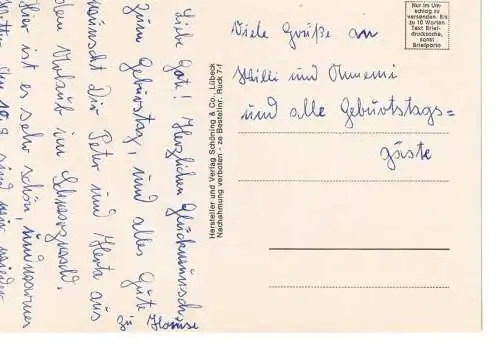 Liebe Gote! Herzlichen Glückwunsch
zum Geburtstag, und alles Gute
wünscht Dir Peter und Herta aus
dem Urlaub im Schwarzwald.
Hier ist es sehr schön,
Am 10.9. sind wir wieder
zu Hause
Hersteller und Verlag Schöning & Co., Lübeck
Nachahmung verboten · ze Bestellnr. Ruck 7-f
Nur im Um-
schlag zu
versenden. Bis
zu 10 Worten
Text Brief-
drucksache,
sonst
Briefporto
Viele Grüße an
Willi und
und alle Geburtstags=
gäste